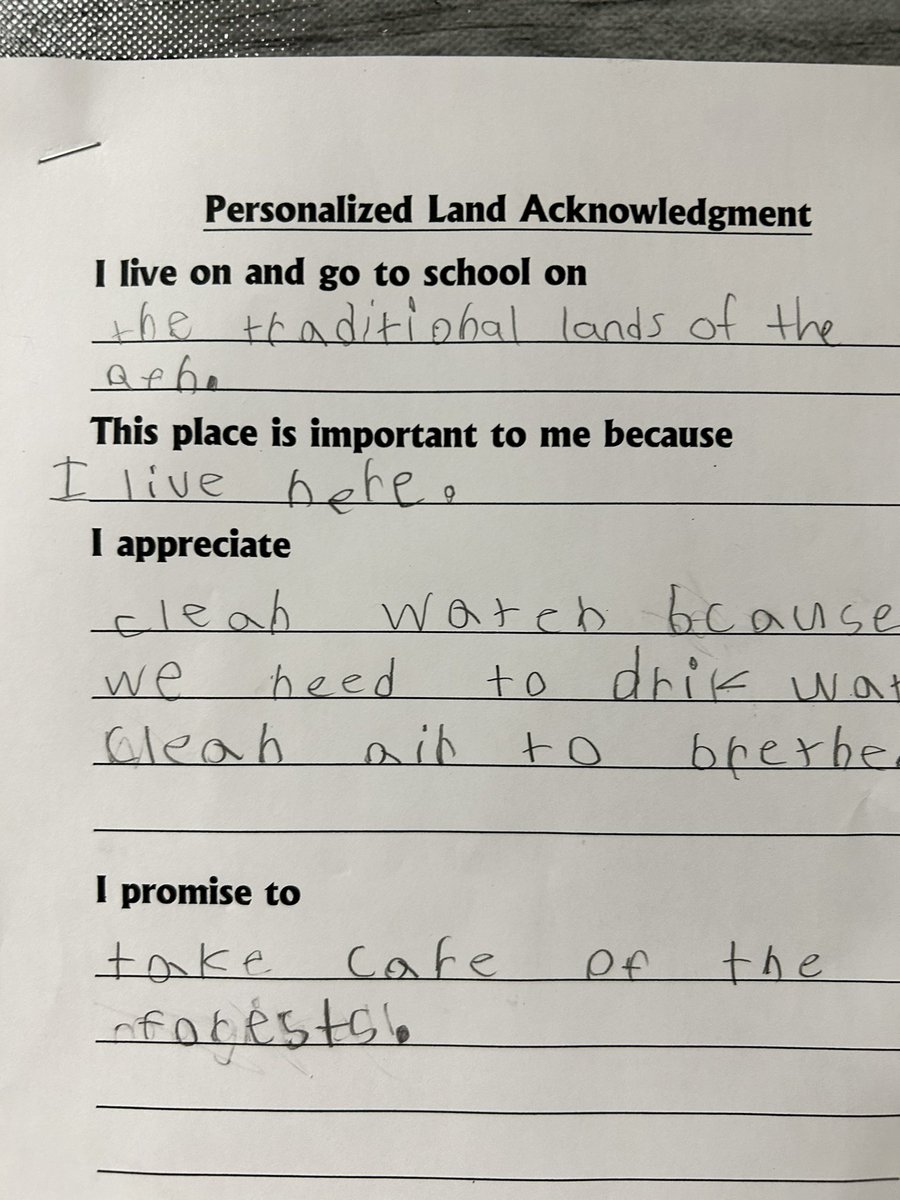 Personalized Land Acknowledgment
I live on and go to school on
the traditional lands of the
This place is important to me because
I live here.
I appreciate
clean water bcause
we need to drik wat
clean air to brethe
I promise to
take care of the
forests.